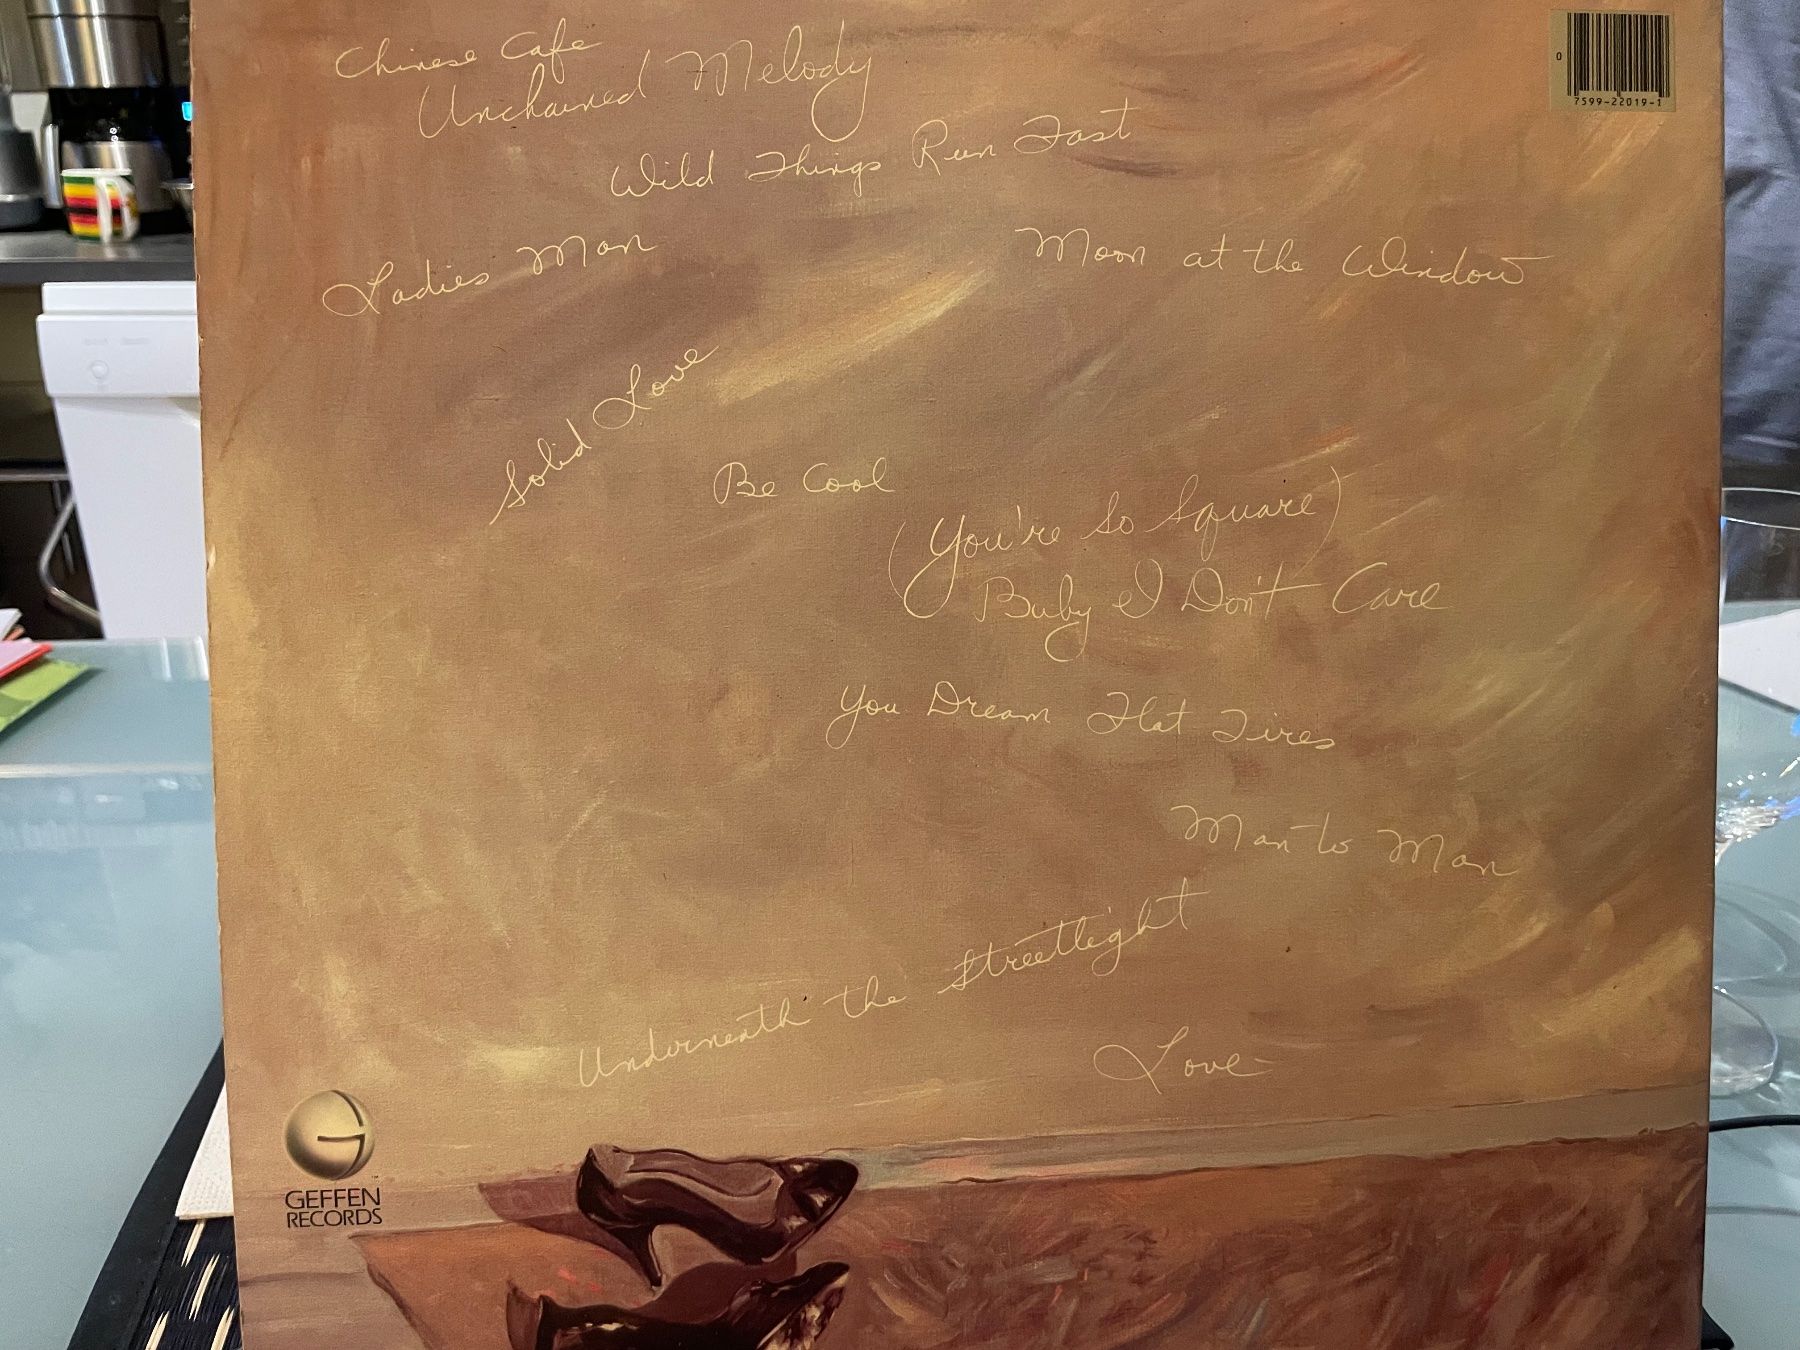 Chinese Cafe
Unchained Melody
0
7599-22019-1
Wild Things Run Fast
Ladies Man
Moon at the Window
Solid Love
Be Cool
(You're So Square)
Baby I Don't Care
You Dream Flat Tires
Man to Man
Underneath the Streetlight
Love
G
GEFFEN
RECORDS